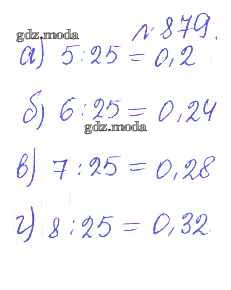 №879.
gdz.moda
а) 5:25=0,2
б) 6:25=0,24
gdz.moda
в) 7:25=0,28
г) 8:25=0,32